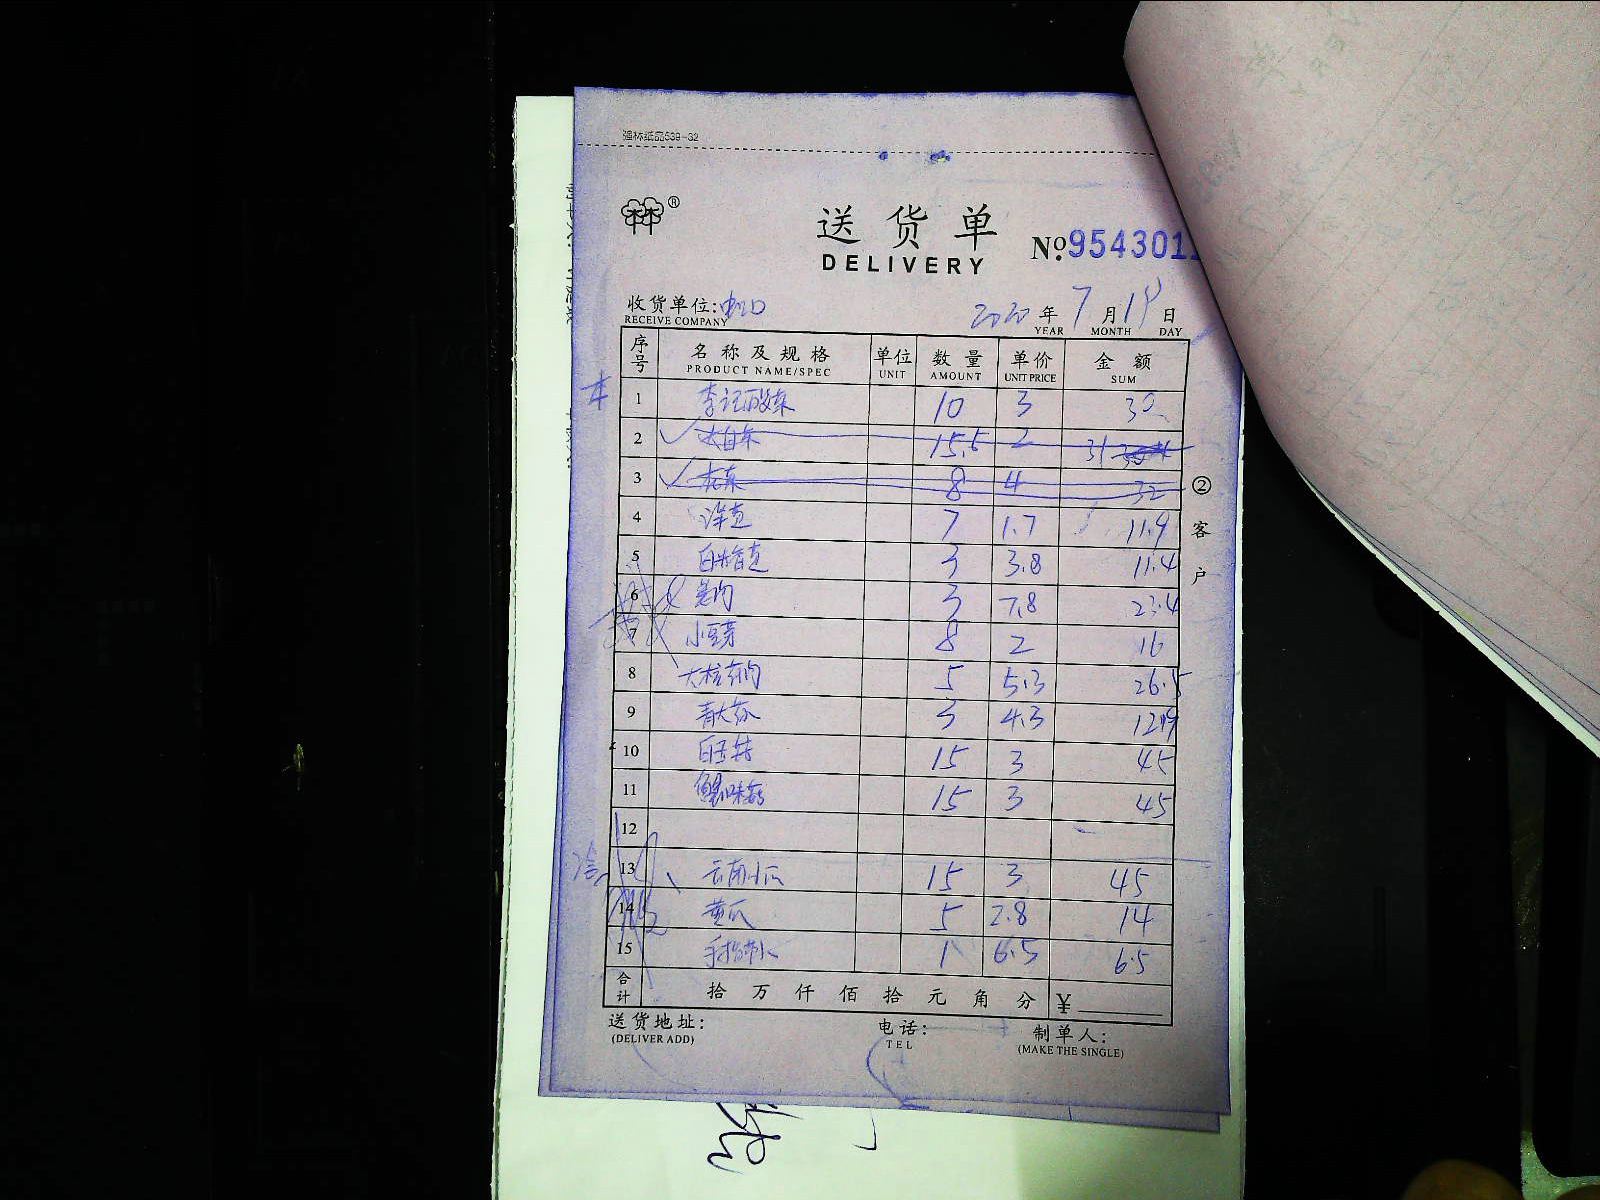 强林纸品539-32
®
送货单
DELIVERY
No:954301
收货单位:
RECEIVE COMPANY
2020 年 7 月 19 日
YEAR MONTH DAY
序号 名称及规格 单位 数量 单价 金额
PRODUCT NAME/SPEC UNIT AMOUNT UNIT PRICE SUM
1 李记酸菜 10 3 30
2 大白菜 15.5 2 31
3 8 4 32
4 洋芋 7 1.7 11.9
5 3 3.8 11.4
6 3 7.8 23.4
7 小豆芽 8 2 16
8 5 5.3 26.5
9 3 4.3 12.9
10 白玉菇 15 3 45
11 蟹味菇 15 3 45
12
13 云南小瓜 15 3 45
14 黄瓜 5 2.8 14
15 1 6.5 6.5
合计 拾 万 仟 佰 拾 元 角 分 ¥
②客户
送货地址: 电话: 制单人:
(DELIVER ADD) TEL (MAKE THE SINGLE)